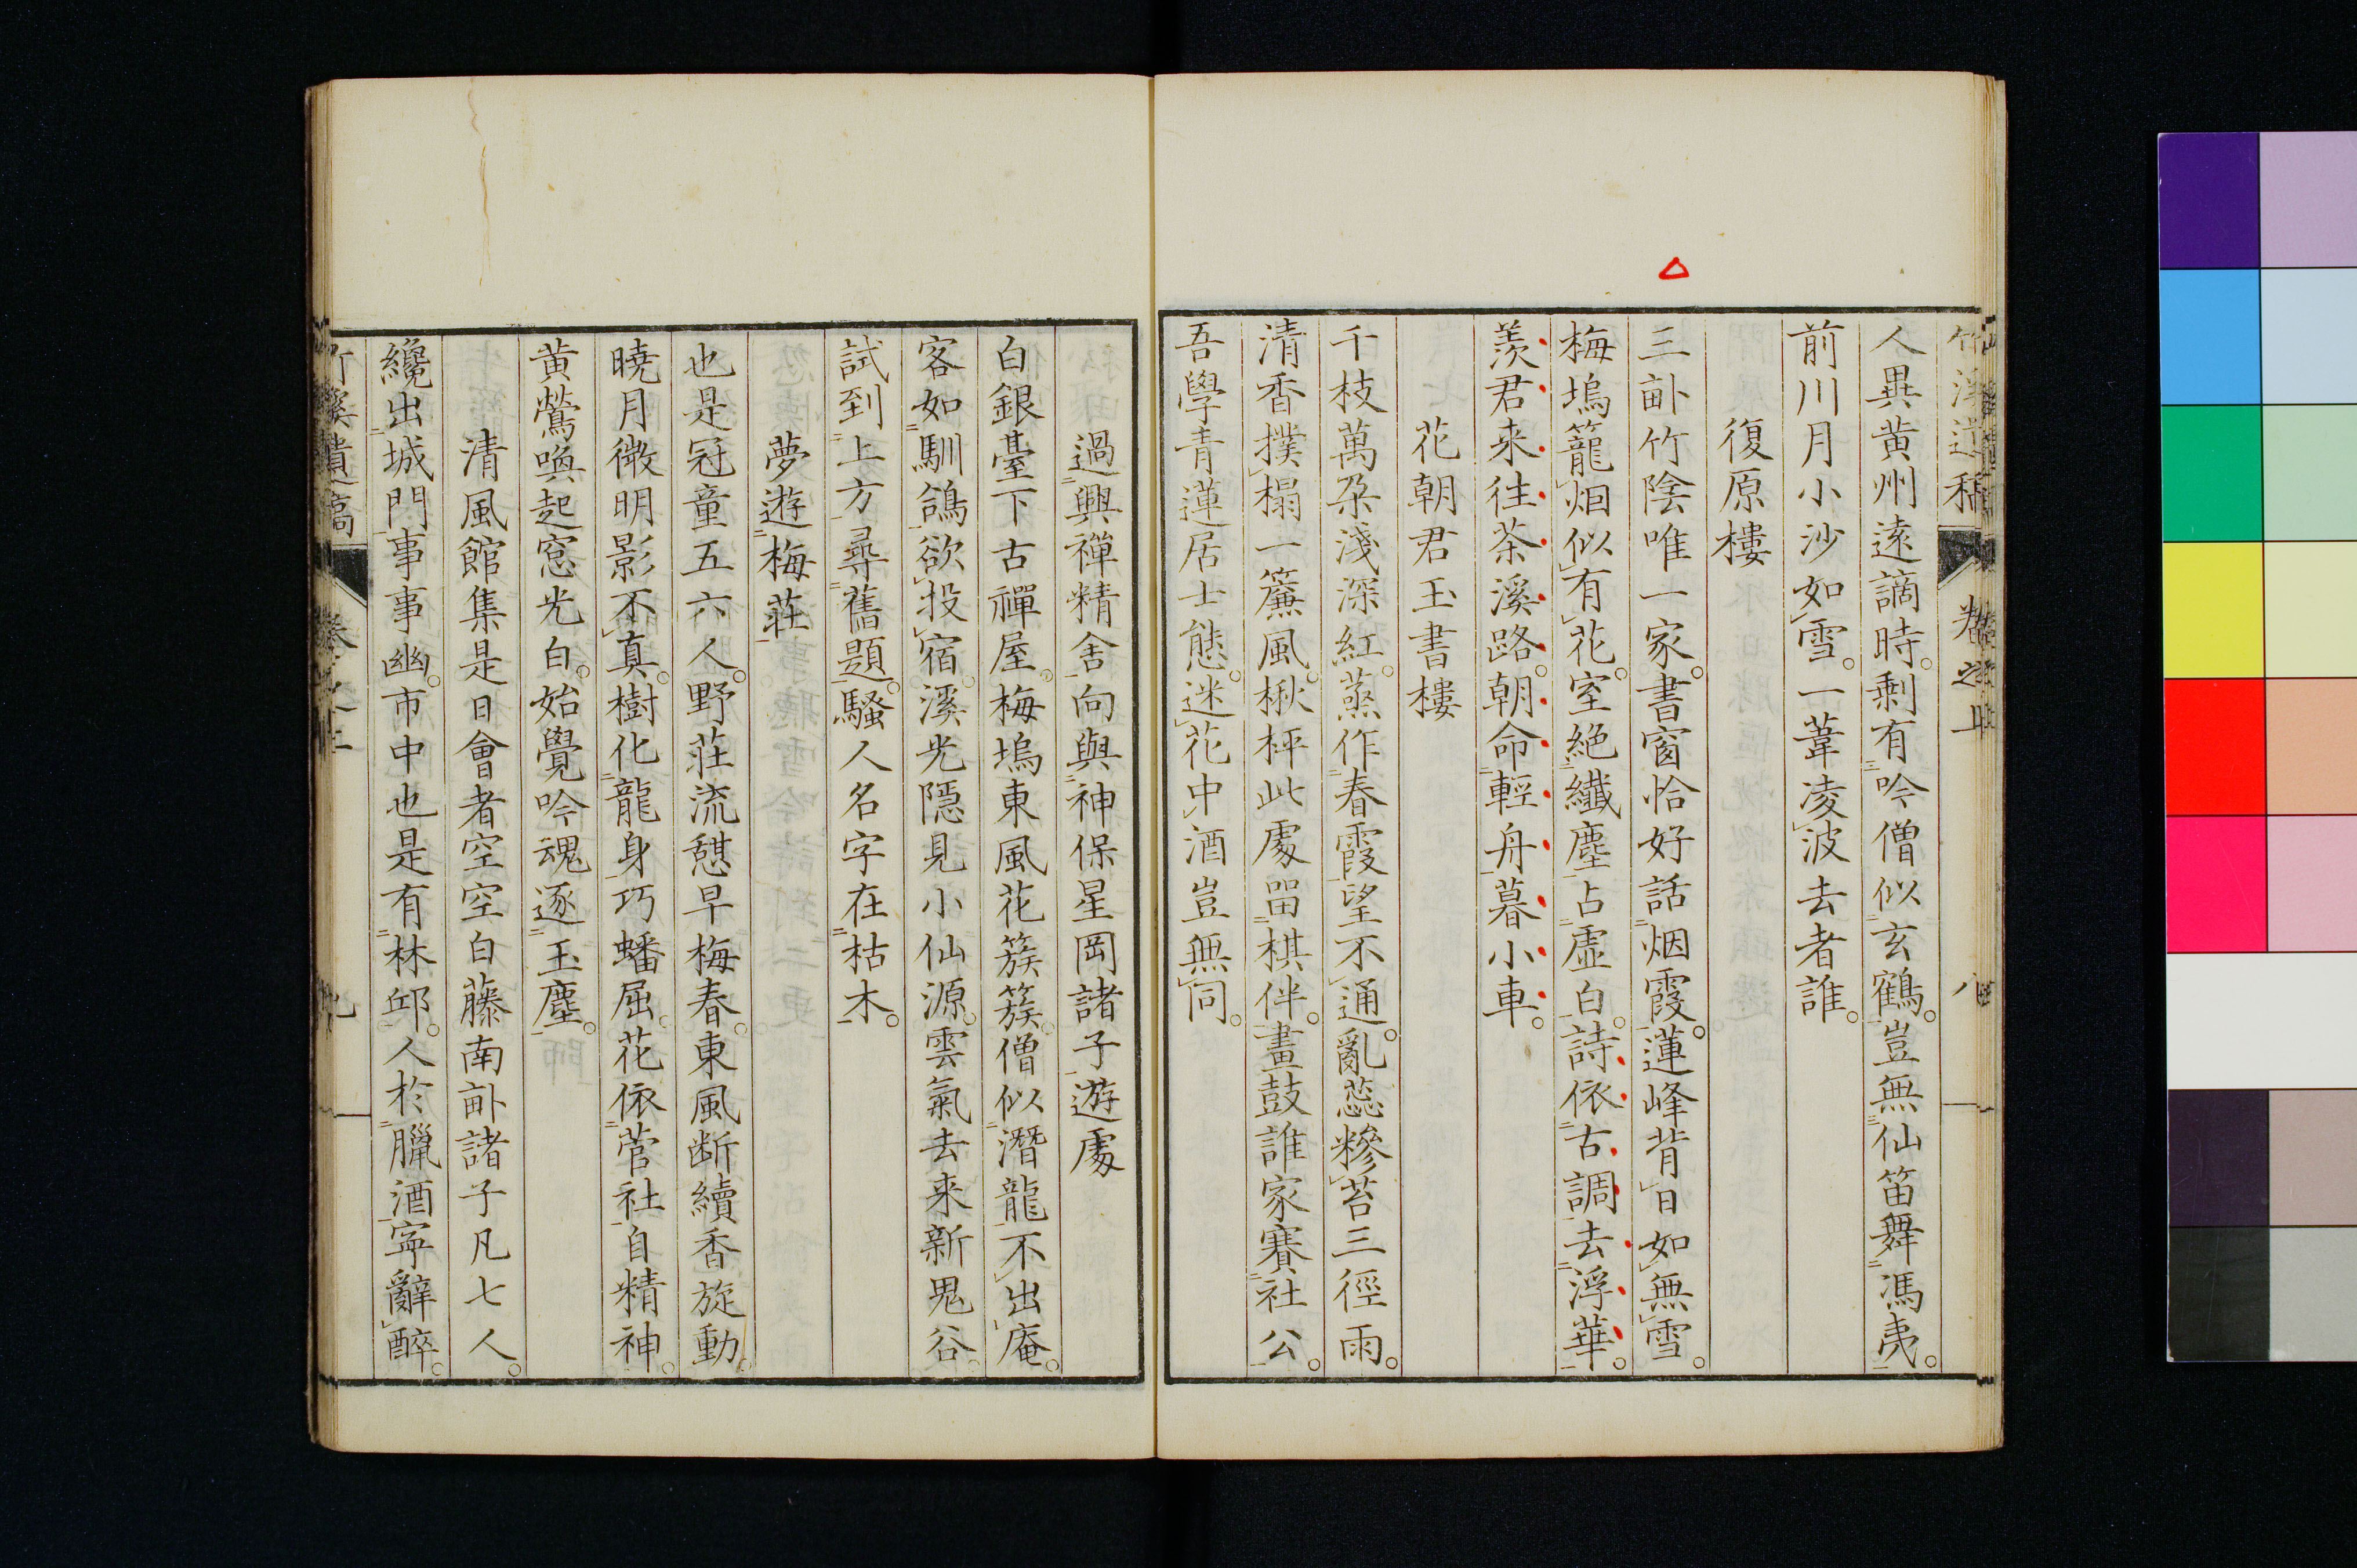 竹溪遺稿 卷之上 八
人異黄州遠謫時。剩有吟僧似玄鶴。豈無仙笛舞馮夷。
前川月小沙如雪。一葦凌波去者誰。
復原樓
三畝竹陰唯一家。書窗恰好話烟霞。蓮峰背日如無雪。
梅塢籠烟似有花。室絶纖塵占虚白。詩依古調去浮華。
羨君来往茶溪路。朝命輕舟暮小車。
花朝君玉書樓
千枝萬朶淺深紅。蒸作春霞望不通。亂蕊糝苔三徑雨。
清香撲榻一簾風。楸枰此處畱棋伴。畫鼓誰家賽社公。
吾學青蓮居士態。迷花中酒豈無同。
過興禪精舍向與神保星岡諸子遊處
白銀臺下古禪屋。梅塢東風花簇簇。僧似潛龍不出庵。
客如馴鴿欲投宿。溪光隱見小仙源。雲氣去来新鬼谷。
試到上方尋舊題。騷人名字在枯木。
夢遊梅莊
也是冠童五六人。野莊流憇早梅春。東風断續香旋動。
曉月微明影不真。樹化龍身巧蟠屈。花依菅社自精神。
黄鶯喚起窓光白。始覺吟魂逐玉塵。
清風館集是日會者空空白藤南畝諸子凡七人。
纔出城門事事幽。市中也是有林邱。人於臘酒寧辭醉。
竹溪遺稿 卷之上 九